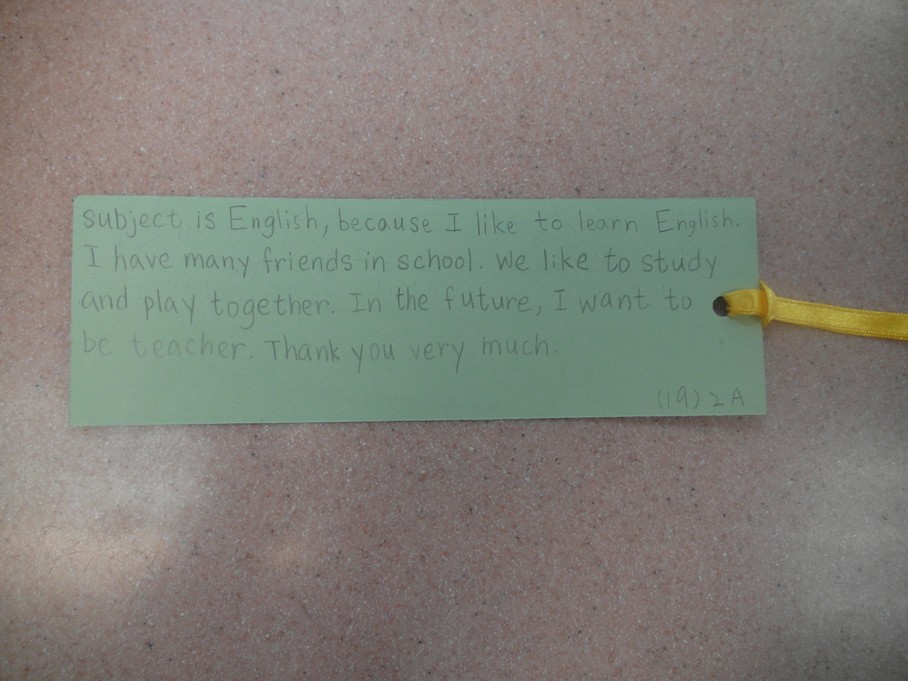 subject is English, because I like to learn English.
I have many friends in school. We like to study
and play together. In the future, I want to
be teacher. Thank you very much.
(19) 2A